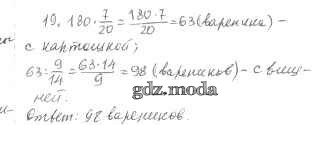 19. 180 · 7/20 = 180·7/20 = 63 (вареника) –
с картошкой;
63 : 9/14 = 63·14/9 = 98 (вареников) – с виш-
ней.
gdz.moda
Ответ: 98 вареников.